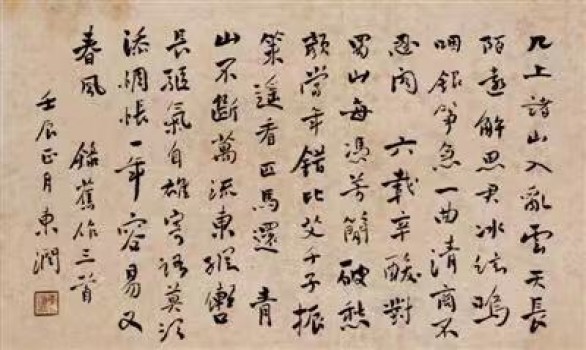 几上諸山入亂雲天長
陌遠解思君冰絃鳴
咽銀箏急一曲清商不
忍聞 六載辛酸對
蜀山每憑芳 破愁
顏當年錯比艾千子振
策遙看匹馬還 青
山不斷萬流東縱轡
長驅氣自雄寄語莫須
添惆悵一年容易又
春風 錄舊作三首
壬辰正月東潤